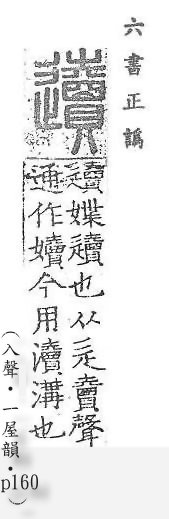 六書正譌
䢱
䢱媟䢱也从辵賣聲
通作嬻今用瀆溝也
（入聲・一屋韻・p160）